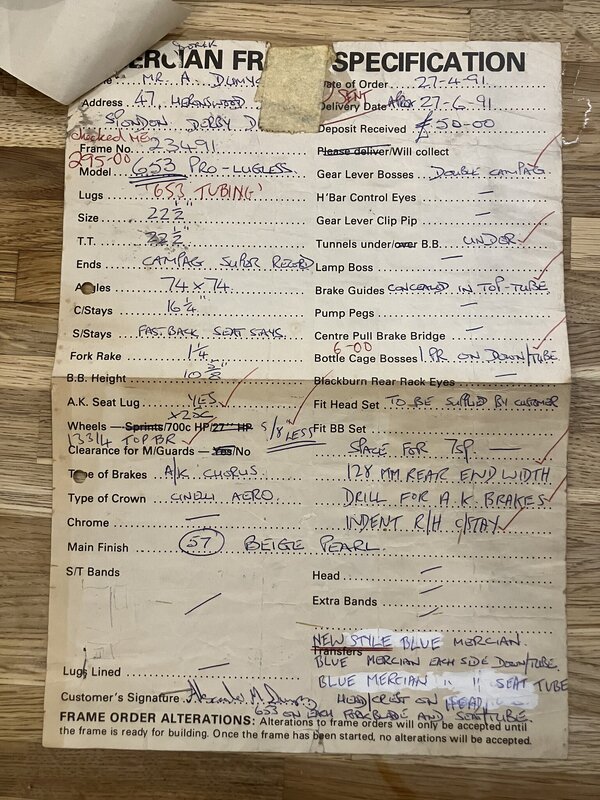 ERCIAN FR SPECIFICATION
MR. A. DUMY
Date of Order 27-4-91
Address 47, 
SENT
Delivery Date APROX 27-6-91
SPONDON DERBY D
Deposit Received £50-00
checked
Frame No. 23491
Please deliver/Will collect
295-00
Model 653 PRO-LUGLESS
Gear Lever Bosses DOUBLE CAMPAG
Lugs '653 TUBING'
H'Bar Control Eyes —
Size 22½"
Gear Lever Clip Pip —
T.T. 22½"
Tunnels under/over B.B. UNDER
Ends CAMPAG SUPER RECORD
Lamp Boss —
Angles 74 x 74
Brake Guides CONCEALED IN TOP-TUBE
C/Stays 16¼"
Pump Pegs —
S/Stays FAST BACK SEAT STAYS
Centre Pull Brake Bridge —
Fork Rake 1¼"
6-00
Bottle Cage Bosses 1 PR ON DOWN/TUBE
B.B. Height 10⅜"
Blackburn Rear Rack Eyes —
A.K. Seat Lug YES
Fit Head Set TO BE SUPPLIED BY CUSTOMER
x20c
Wheels — Sprints/700c HP/27" HP 5/8 LESS
Fit BB Set
13 3/4 TOP BR
Clearance for M/Guards — Yes/No
SPACE FOR 7SP. —
Type of Brakes A/K CHORUS
128 MM REAR END WIDTH
Type of Crown CINELLI AERO
DRILL FOR A.K. BRAKES
Chrome —
INDENT R/H C/STAY
Main Finish 57 BEIGE PEARL
S/T Bands
Head —
Extra Bands —
NEW STYLE BLUE MERCIAN
Transfers
BLUE MERCIAN EACH SIDE DOWN/TUBE
Lugs Lined —
BLUE MERCIAN " " SEAT TUBE
Customer's Signature
HEAD/CREST ON HEAD/
653 ON EACH FORK BLADE AND SEAT/TUBE.
FRAME ORDER ALTERATIONS: Alterations to frame orders will only be accepted until
the frame is ready for building. Once the frame has been started, no alterations will be accepted.